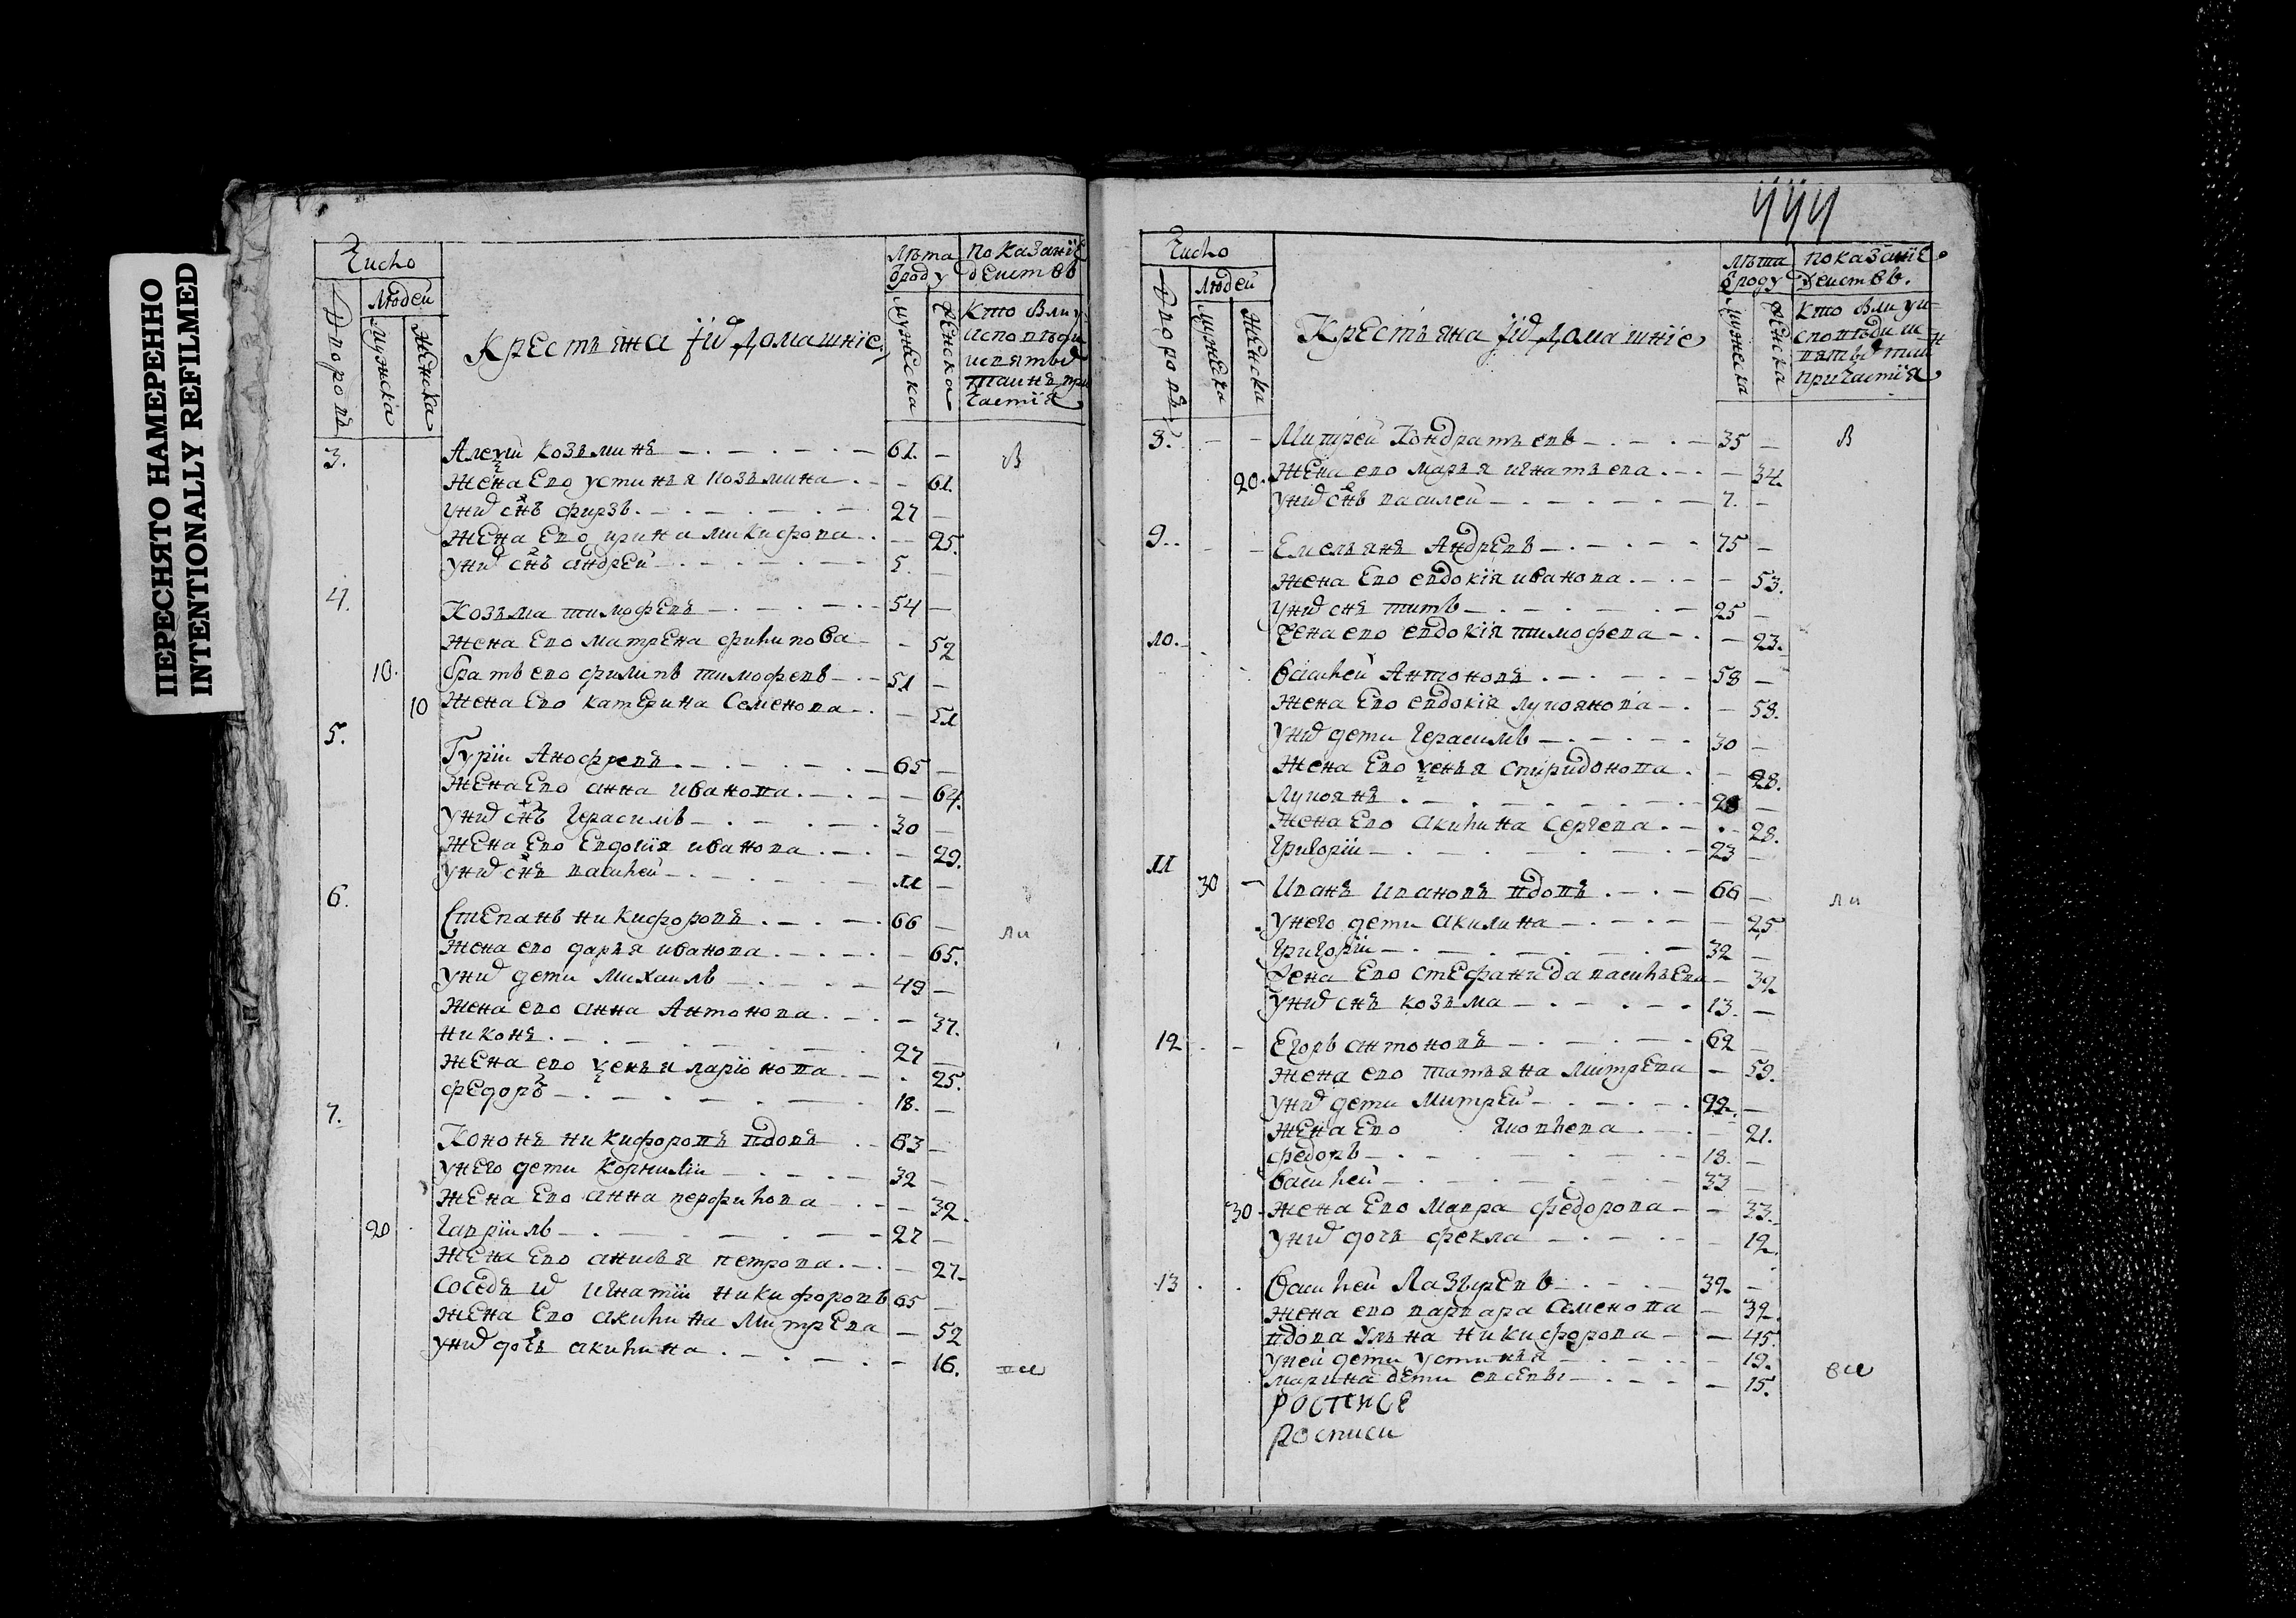 ПЕРЕСНЯТО НАМЕРЕННО
INTENTIONALLY REFILMED
Число
Людей
Дворовъ
Мужска
Женска
Крестьяна и ихъ домашнїе
Лѣта
ѿ роду
мужеска
женска
показанїе
действъ
кто былъ у
исповѣди
и святыхъ
таинъ при
частїя
3.
Алеѯѣи Козьминъ 61. В
Жена ево устинья козьмина 61.
у нихъ снъ фирзъ 27
Жена ево ирина микифрова 25.
у нихъ снъ андрей 5.
4.
Козьма тимофевъ 54
Жена ево матрена филипова 52
10. братъ ево филипъ тимофевъ 51
10 Жена ево катерина Семенова 51
5.
Гурїи Анофревъ 65
Жена ево анна иванова 64.
у нихъ снъ герасимъ 30
Жена ево евдокїя иванова 29.
у нихъ снъ василей 11
6.
Степанъ никифоровъ 66 ли
Жена ево дарья иванова 65.
у нихъ дети михаилъ 49
Жена ево анна Антонова 37.
никонъ 27
Жена ево ѯенья ларїонова 25.
федоръ 18.
7.
Кононъ никифоровъ вдовъ 63
у него дети корнилїи 32
Жена ево анна перфилова 32
20 гаврїилъ 27
Жена ево анисья петрова 27
соседъ их игнатїи никифоровъ 65
Жена ево акилина митрева 52
у нихъ дочь акилина 16.
444
Число
Людей
Дворовъ
мужска
Женска
Крестьяна и ихъ домашнїе
лѣта
ѿ роду
мужеска
женска
показанїе
действъ.
кто былъ у и
споведи и с
вятыхъ таин
причастїя
8. Митрей Кондратьевъ 35 В
20. Жена ево марья игнатьева 34.
у нихъ снъ василей 7.
9. Емельянъ Андревъ 75
жена ево евдокїя иванова 53.
у нихъ снъ титъ 25
10. жена ево евдокїя тимофева 23.
василей Антоновъ 58
Жена ево евдокїя лукоянова 58.
у нихъ дети герасимъ 30
Жена ево ѯенья спиридонова 28.
Лукоянъ 28
Жена ево акилина сергева 28.
григорїи 23
11
30 Иванъ ивановъ вдовъ 66 ли
у него дети акилина 25
григорїи 32
жена ево стефанида васильева 32
у нихъ снъ козьма 13.
12 Егоръ антоновъ 62
Жена ево татьяна митрева 59.
у нихъ дети митрей 22
Жена ево яковлева 21.
федоръ 18.
василей 33
30 Жена ево мавра федорова 33.
у нихъ дочь фекла 12.
13 василей Лазыревъ 32
Жена ево варвара семенова 32.
вдова ульяна никифорова 45.
у ней дети устинья 19.
марина дети евсевы 15.
росписи